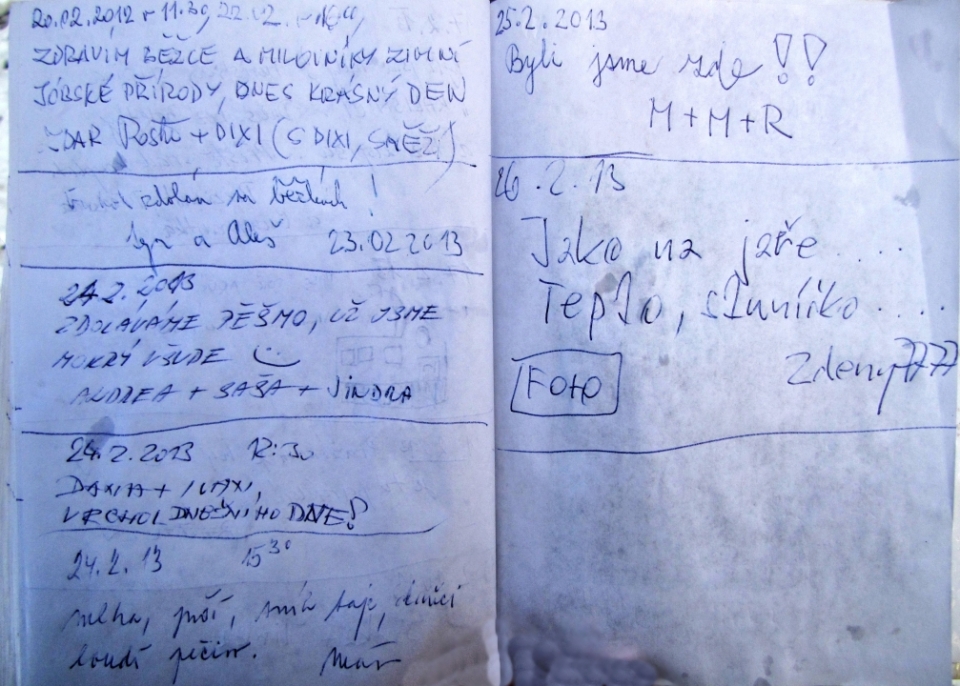 20.02.2012 11.30, 22.02.
ZDRAVÍM BĚŽCE A MILOVNÍKY ZIMNÍ
PŘÍRODY, DNES KRÁSNÝ DEN
ZDAR + DIXI (S DIXI, SNĚŽÍ)
zdolán na běžkách !
a Aleš 23.02 2013
24.2.2013
ZDOLÁVÁME PĚŠMO, UŽ JSME
MOKRÝ VŠUDE
ANDREA + SAŠA + JINDRA
24.2.2013 12:30
VRCHOL DNEŠNÍHO DNE!
24.2.13 15 30
mlha, prší, sníh taje,
25.2.2013
Byli jsme zde !!
M+M+R
26.2.13
Jako na jaře ....
Teplo, sluníčko ....
Zdeny7777
Foto